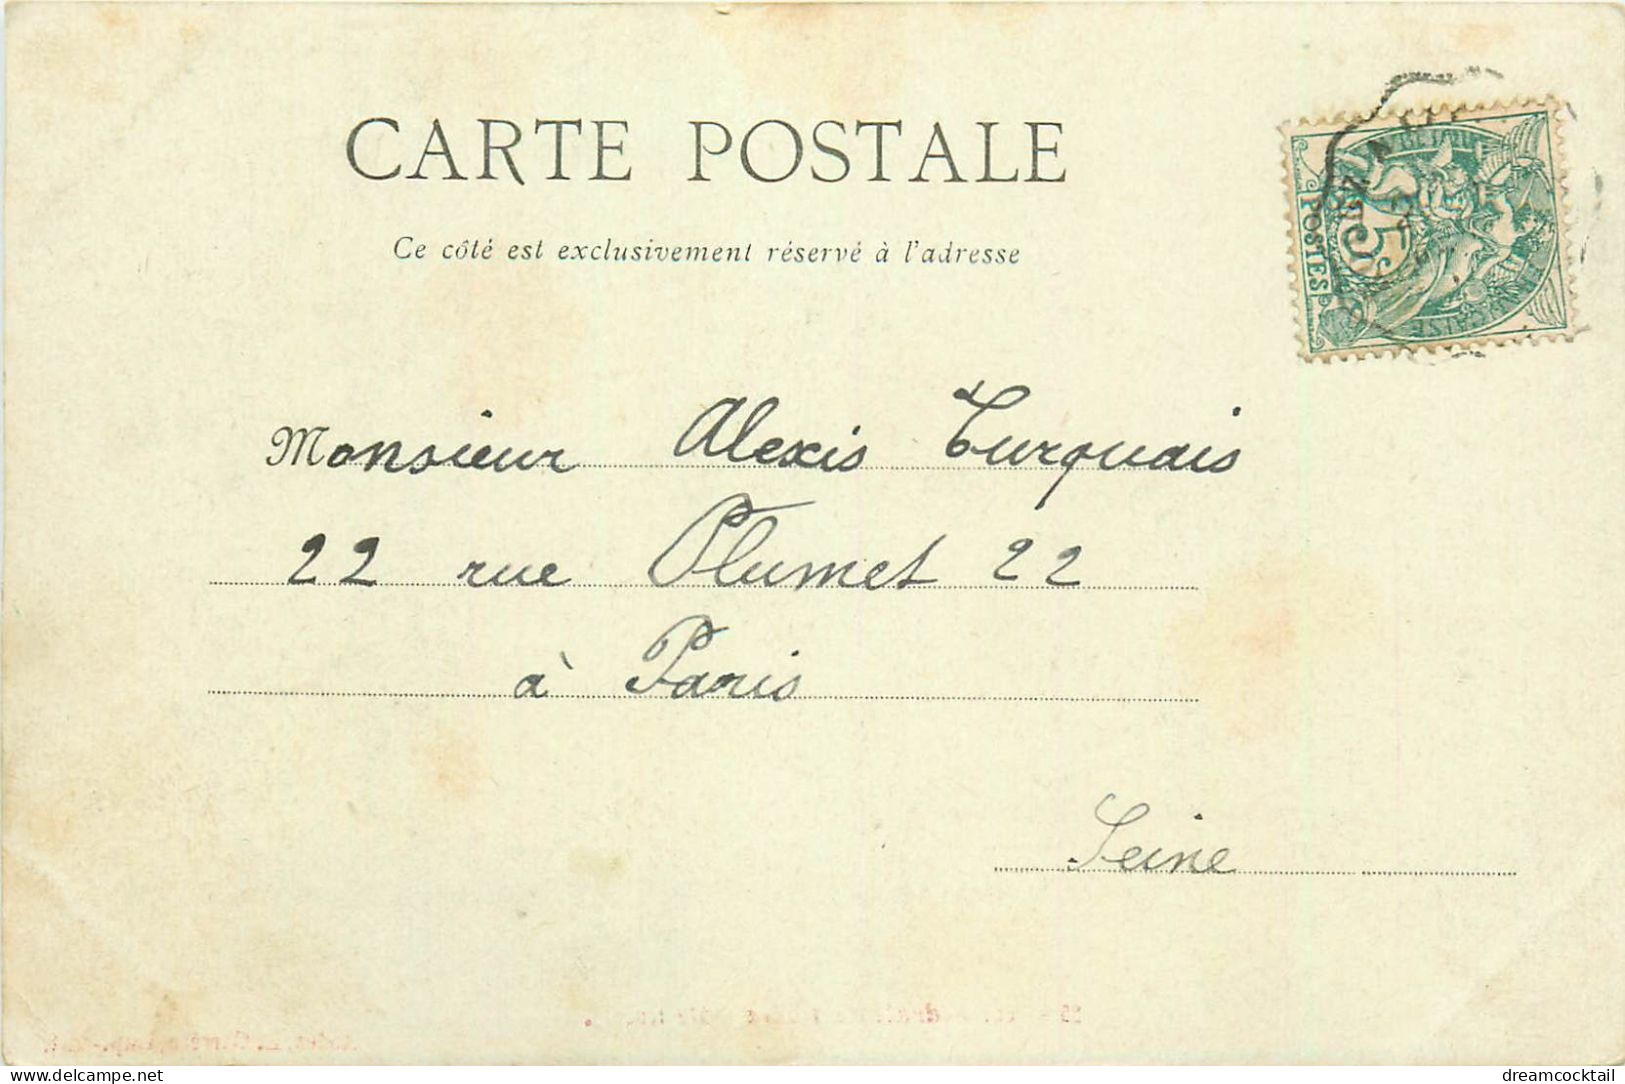 CARTE POSTALE
Ce côté est exclusivement réservé à l'adresse
POSTES
5
Monsieur Alexis Turquais
22 rue Plumet 22
à Paris
Seine
www.delcampe.net
dreamcocktail